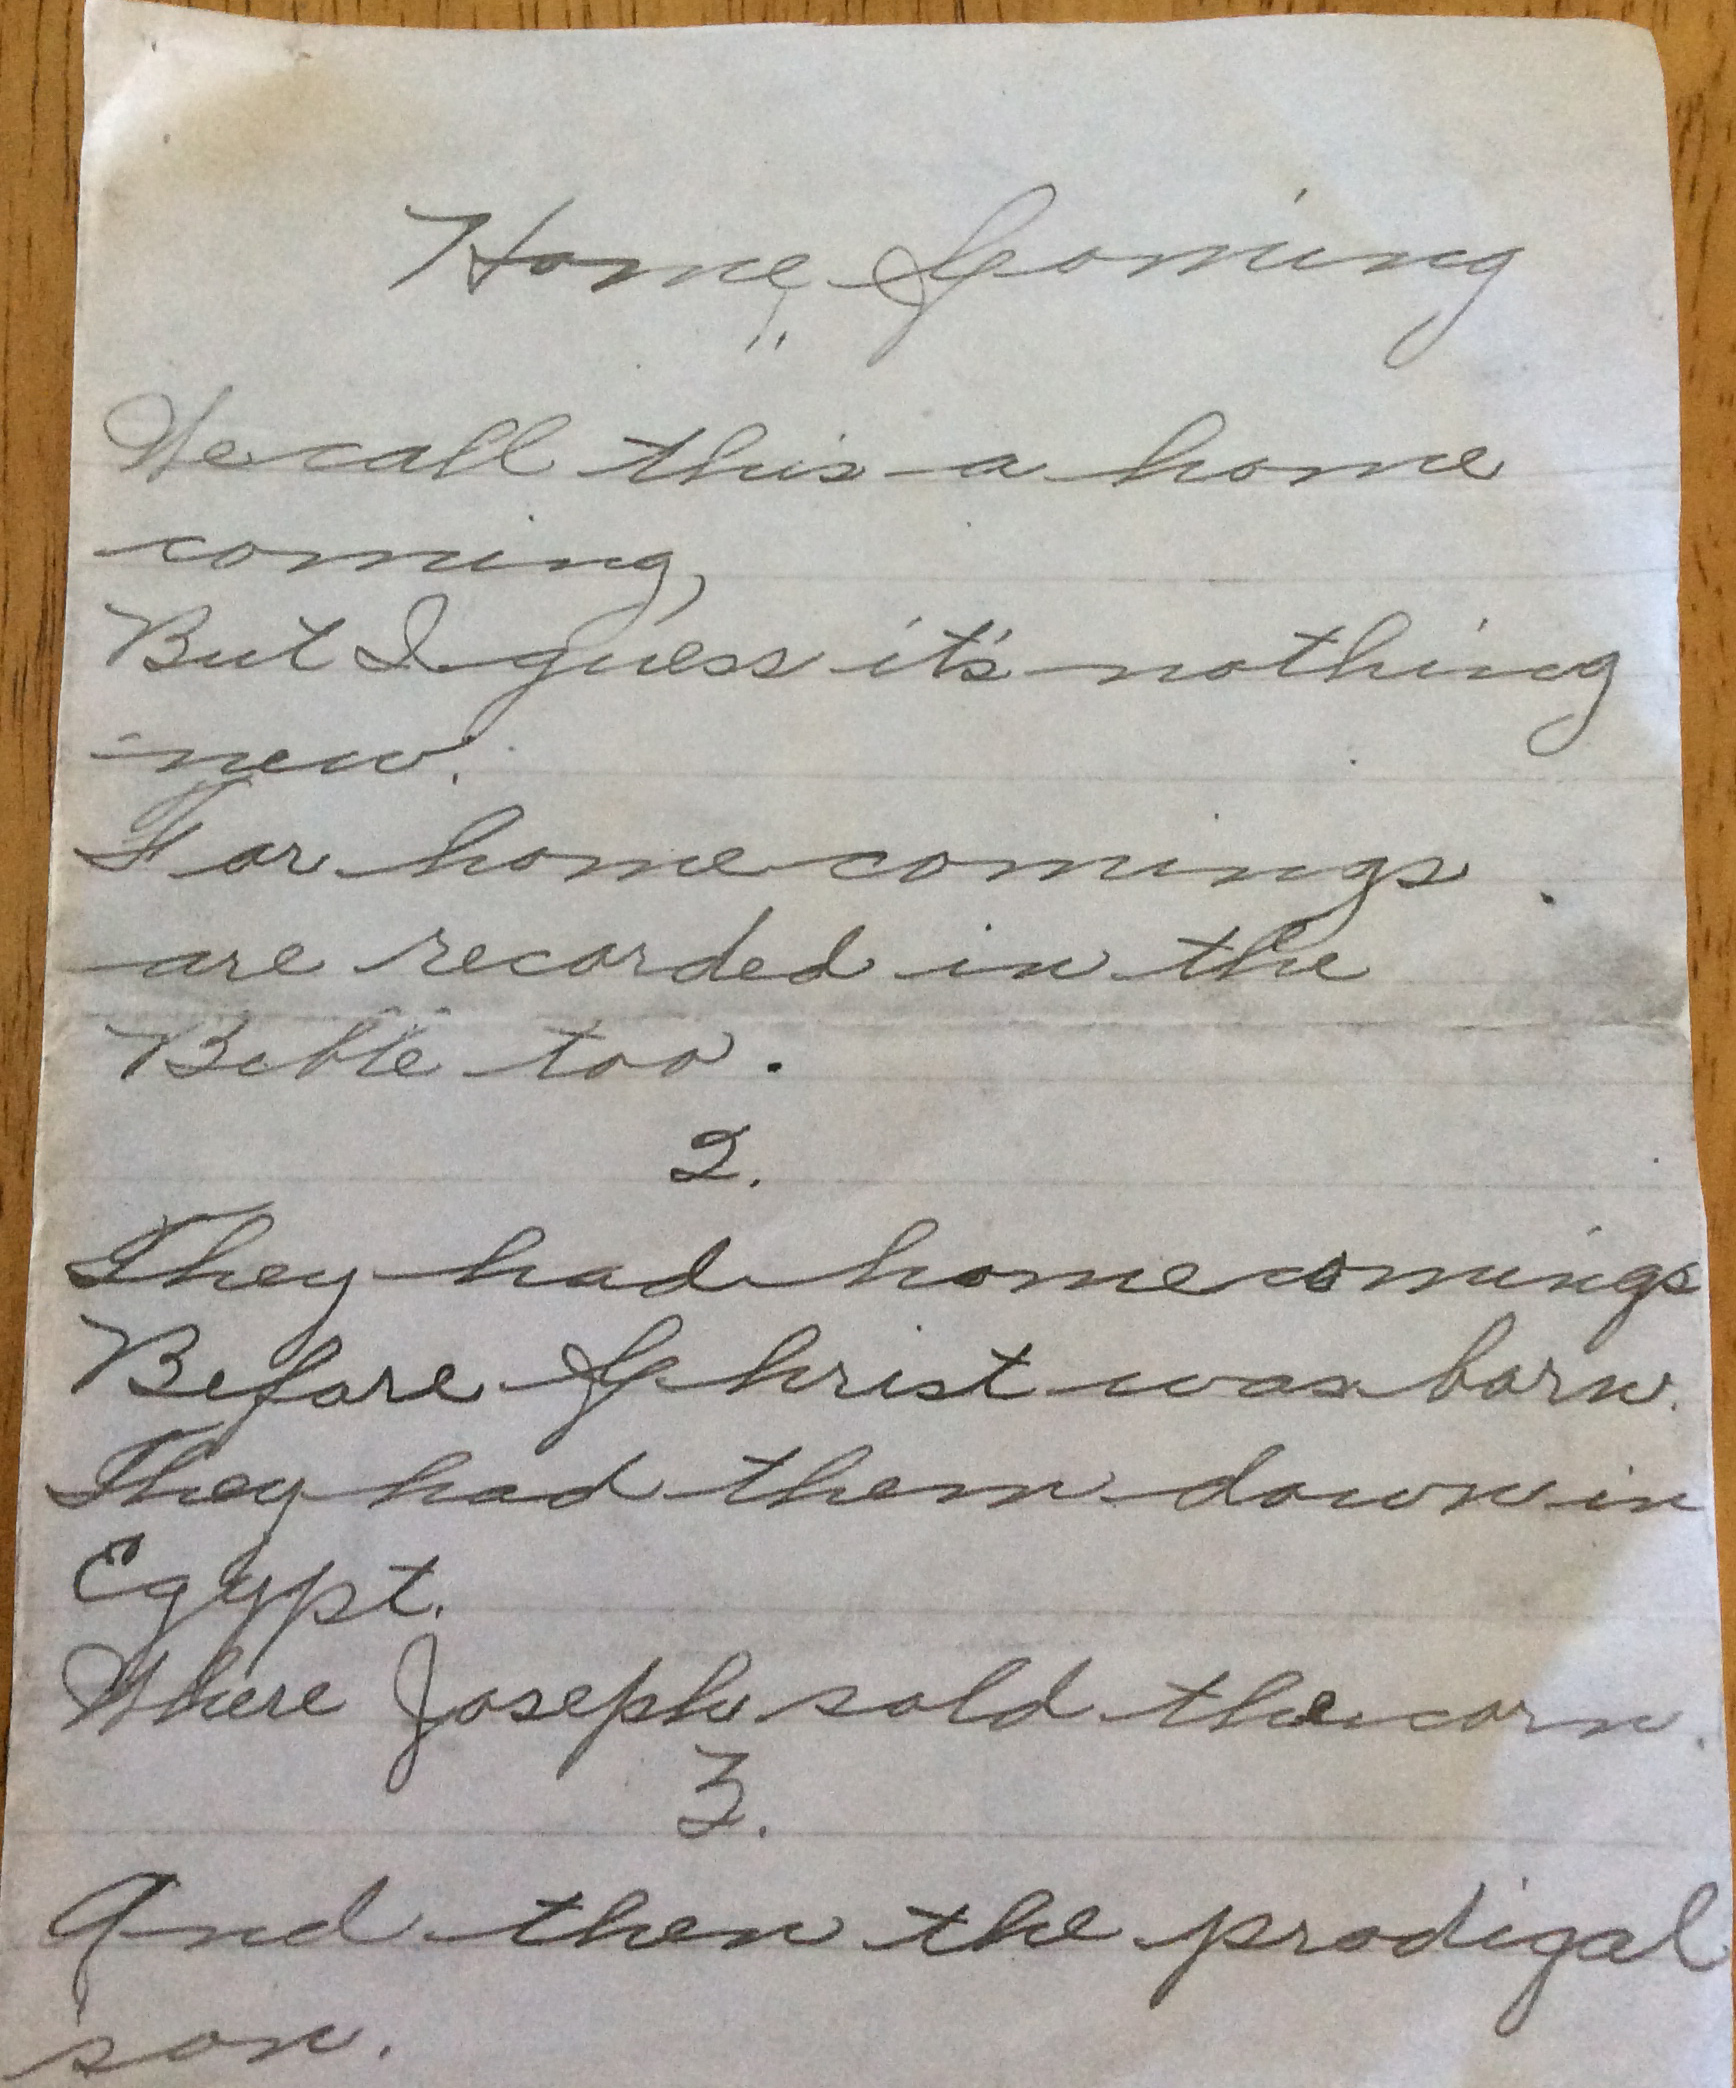 Home Coming
"
We call this a home
coming,
But I guess it's nothing
new.
For home comings
are recorded in the
Bible too.
2.
They had home comings
Before Christ was born.
They had them down in
Egypt.
Where Joseph sold the corn.
3.
And then the prodigal
son.